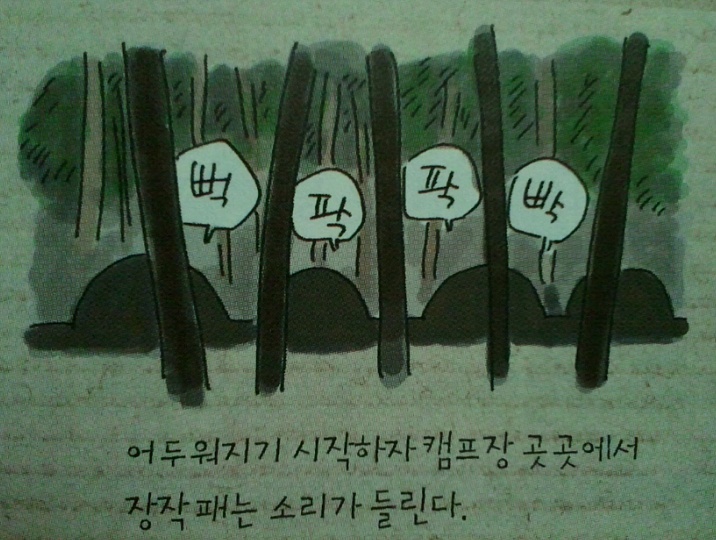 뻑
팍
팍
빡
어두워지기 시작하자 캠프장 곳곳에서
장작 패는 소리가 들린다.